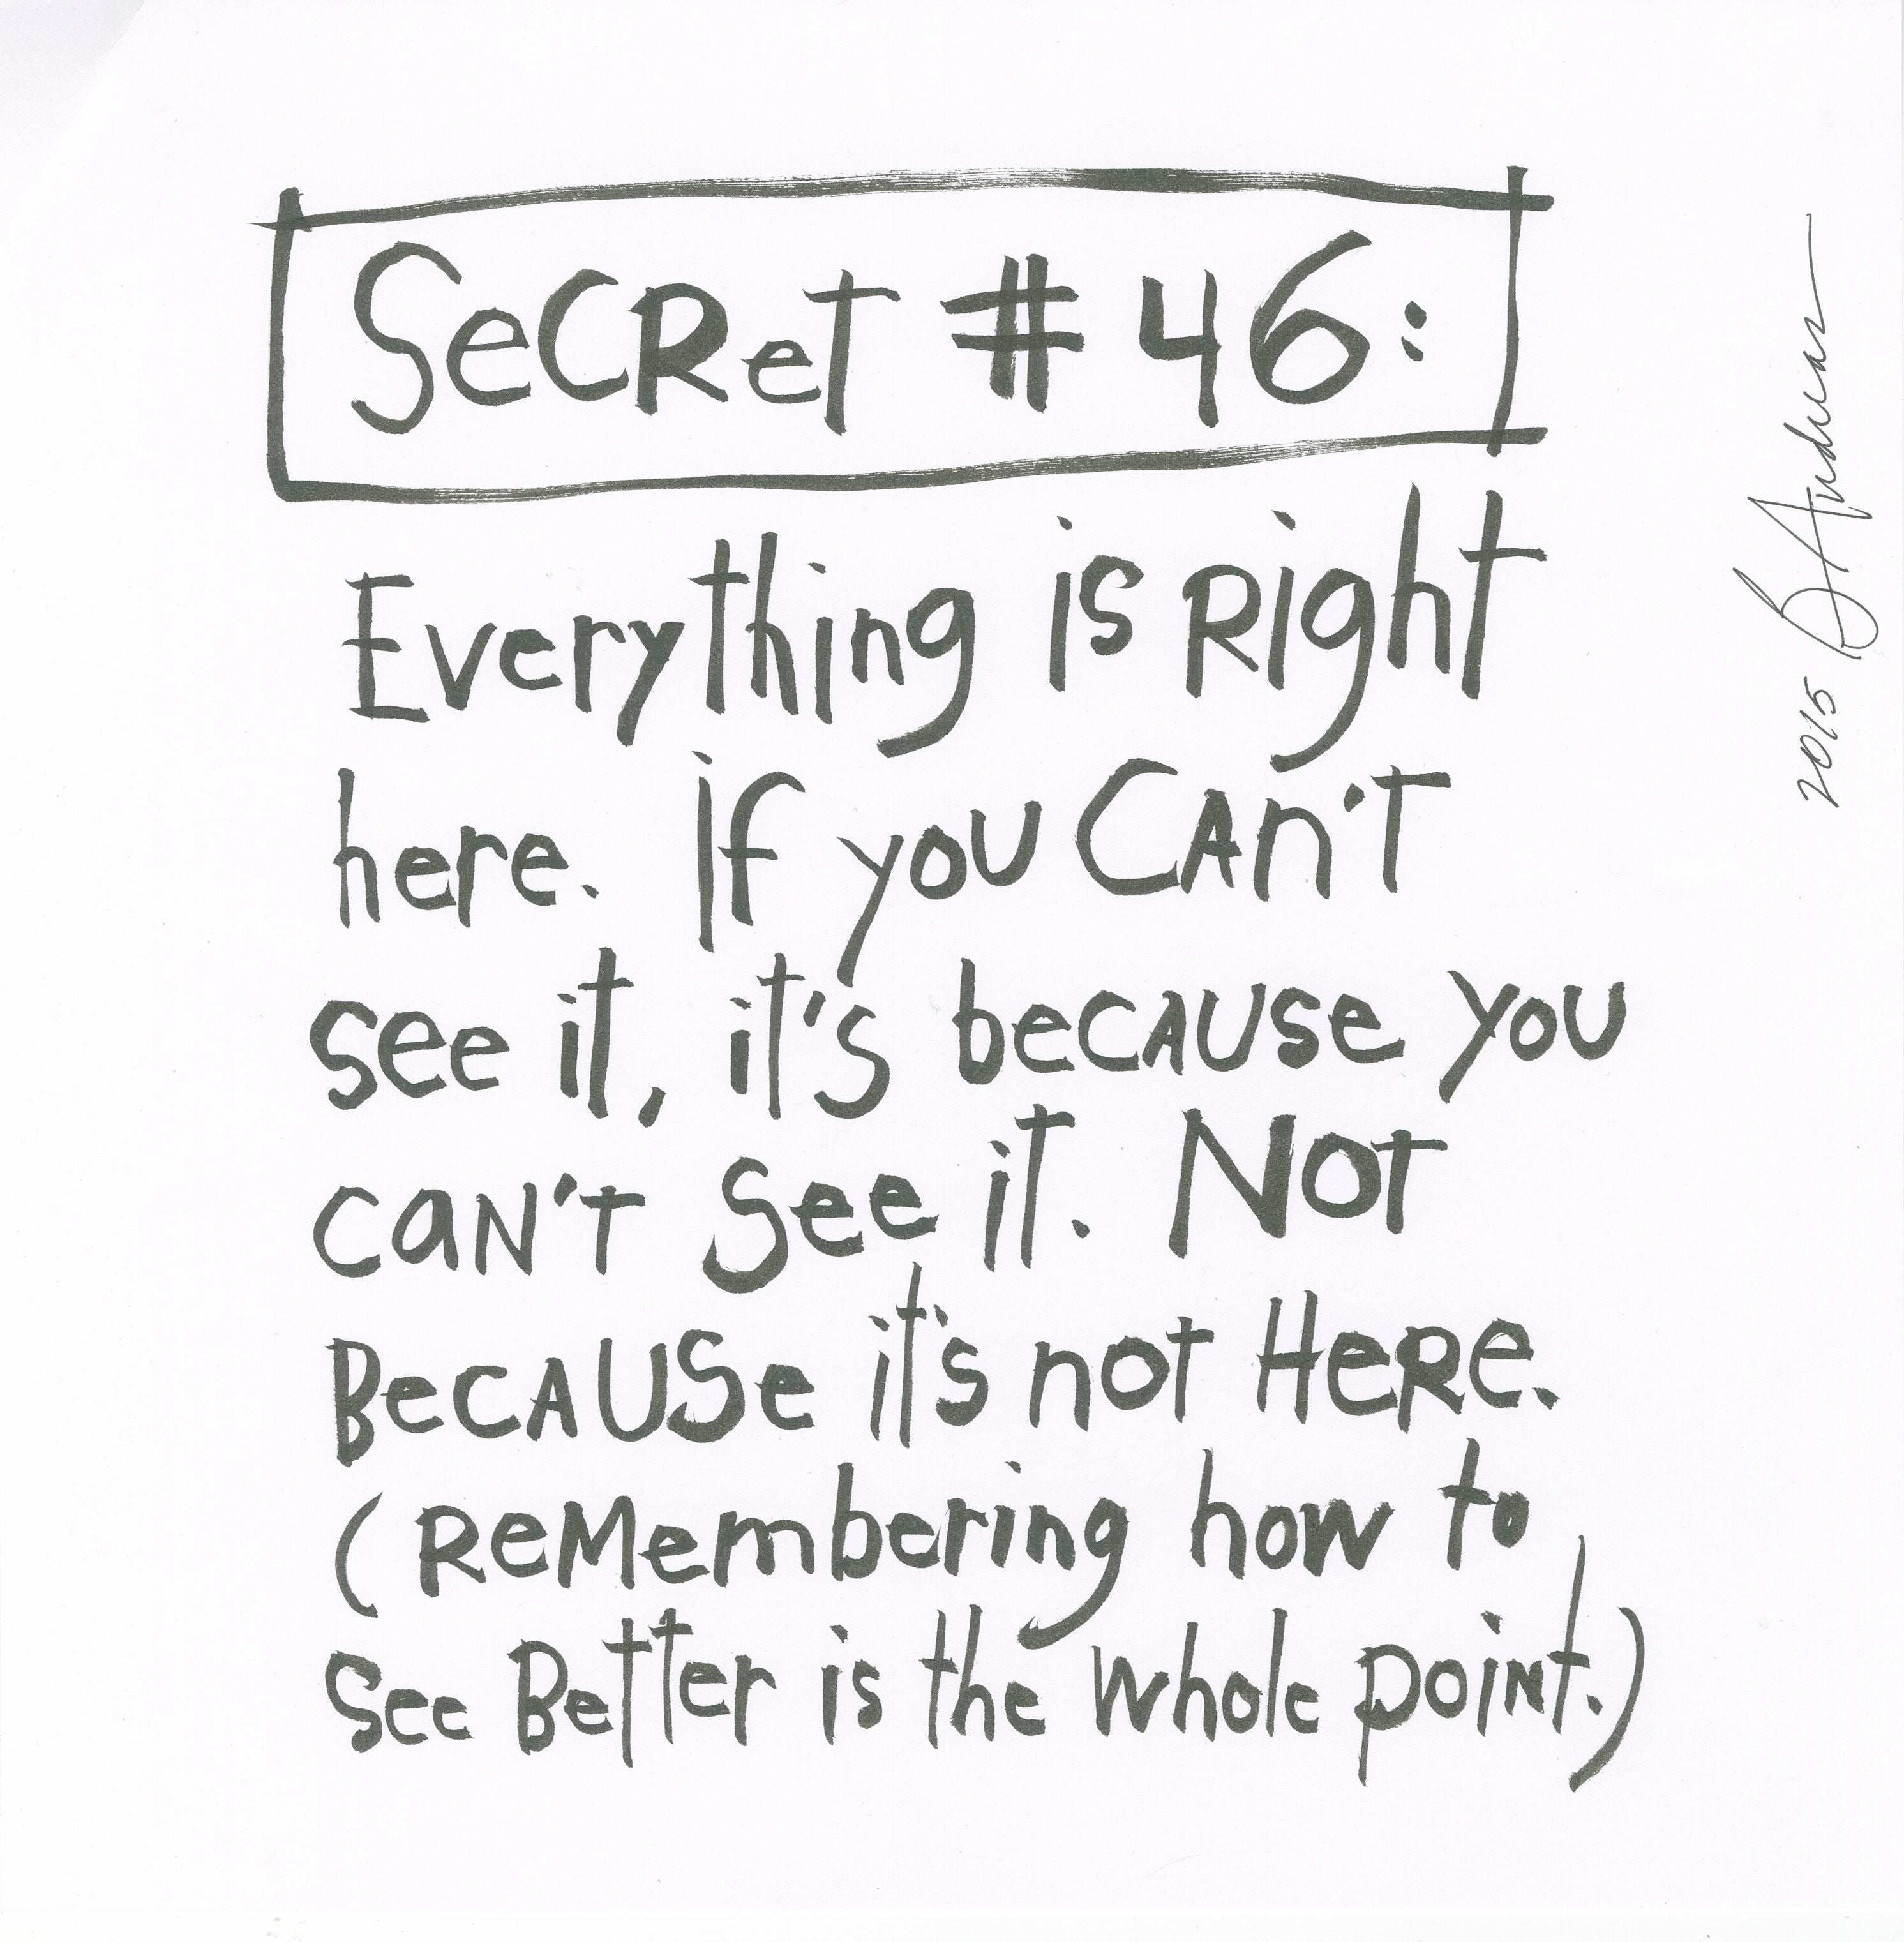 SeCRet # 46:
Everything is Right
here. If you CAn't
see it, it's becAUse you
caN't See it. Not
BecAUSe it's not HeRe.
(ReMembering how to
see Better is the whole poiNt.)
2015 B Andreas